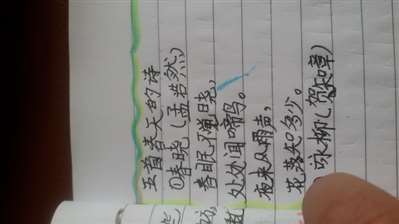 五首春天的诗
①春晓(孟浩然)
春眠不觉晓,
处处闻啼鸟。
夜来风雨声,
花落知多少。
咏柳(贺知章)